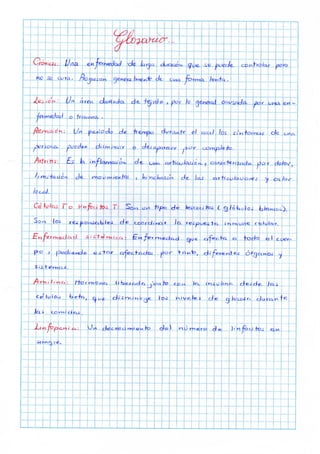 Glosario...
Crónica: Una enfermedad de larga duración que se puede controlar pero
no se cura. Progresan generalmente de una forma lenta.
Lesión: Un área dañada de tejido, por lo general causada por una en-
fermedad o trauma.
Remisión: Un periodo de tiempo durante el cual los síntomas de una
persona pueden disminuir o desaparecer por completo.
Artritis: Es la inflamación de una articulación, caracterizada por dolor,
limitación de movimientos, hinchazón de las articulaciones y calor
local.
Células T o linfocitos T: Son un tipo de leucocitos (glóbulos blancos).
Son los responsables de coordinar la respuesta inmune celular.
Enfermedad sistémica: Enfermedad que afecta a todo el cuer-
po, pudiendo estar afectados por tanto, diferentes órganos y
sistemas.
Amilina: Hormona liberada junto con la insulina desde las
células beta, que disminuye los niveles de glucosa durante
las comidas.
Linfopenia: Un decrecimiento del número de linfocitos en
sangre.